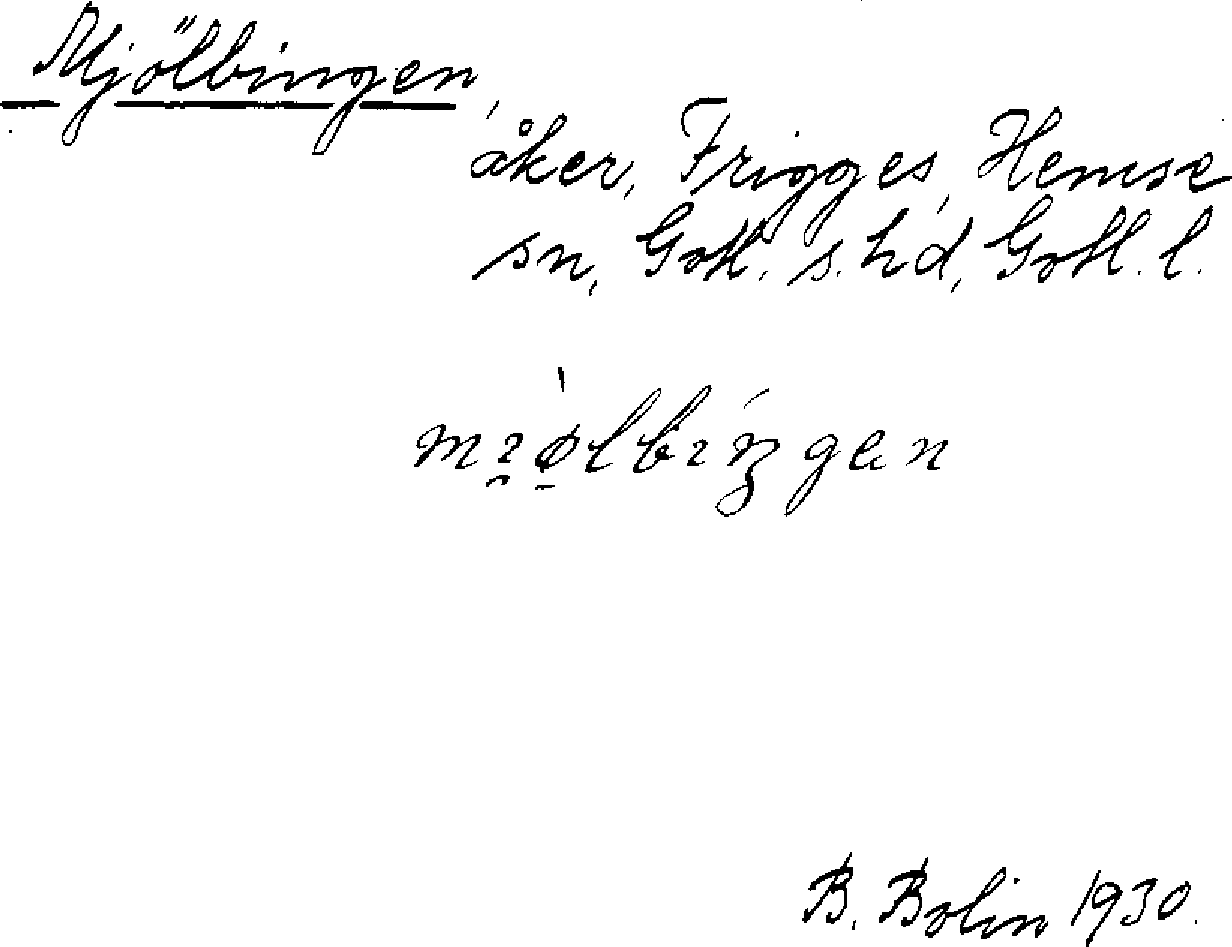 Mjölbingen,
åker, Frigges, Hemse
sn, Gotl. s. hd, Gotl. l.
mıø̀lbıŋgen
B. Bolin 1930.